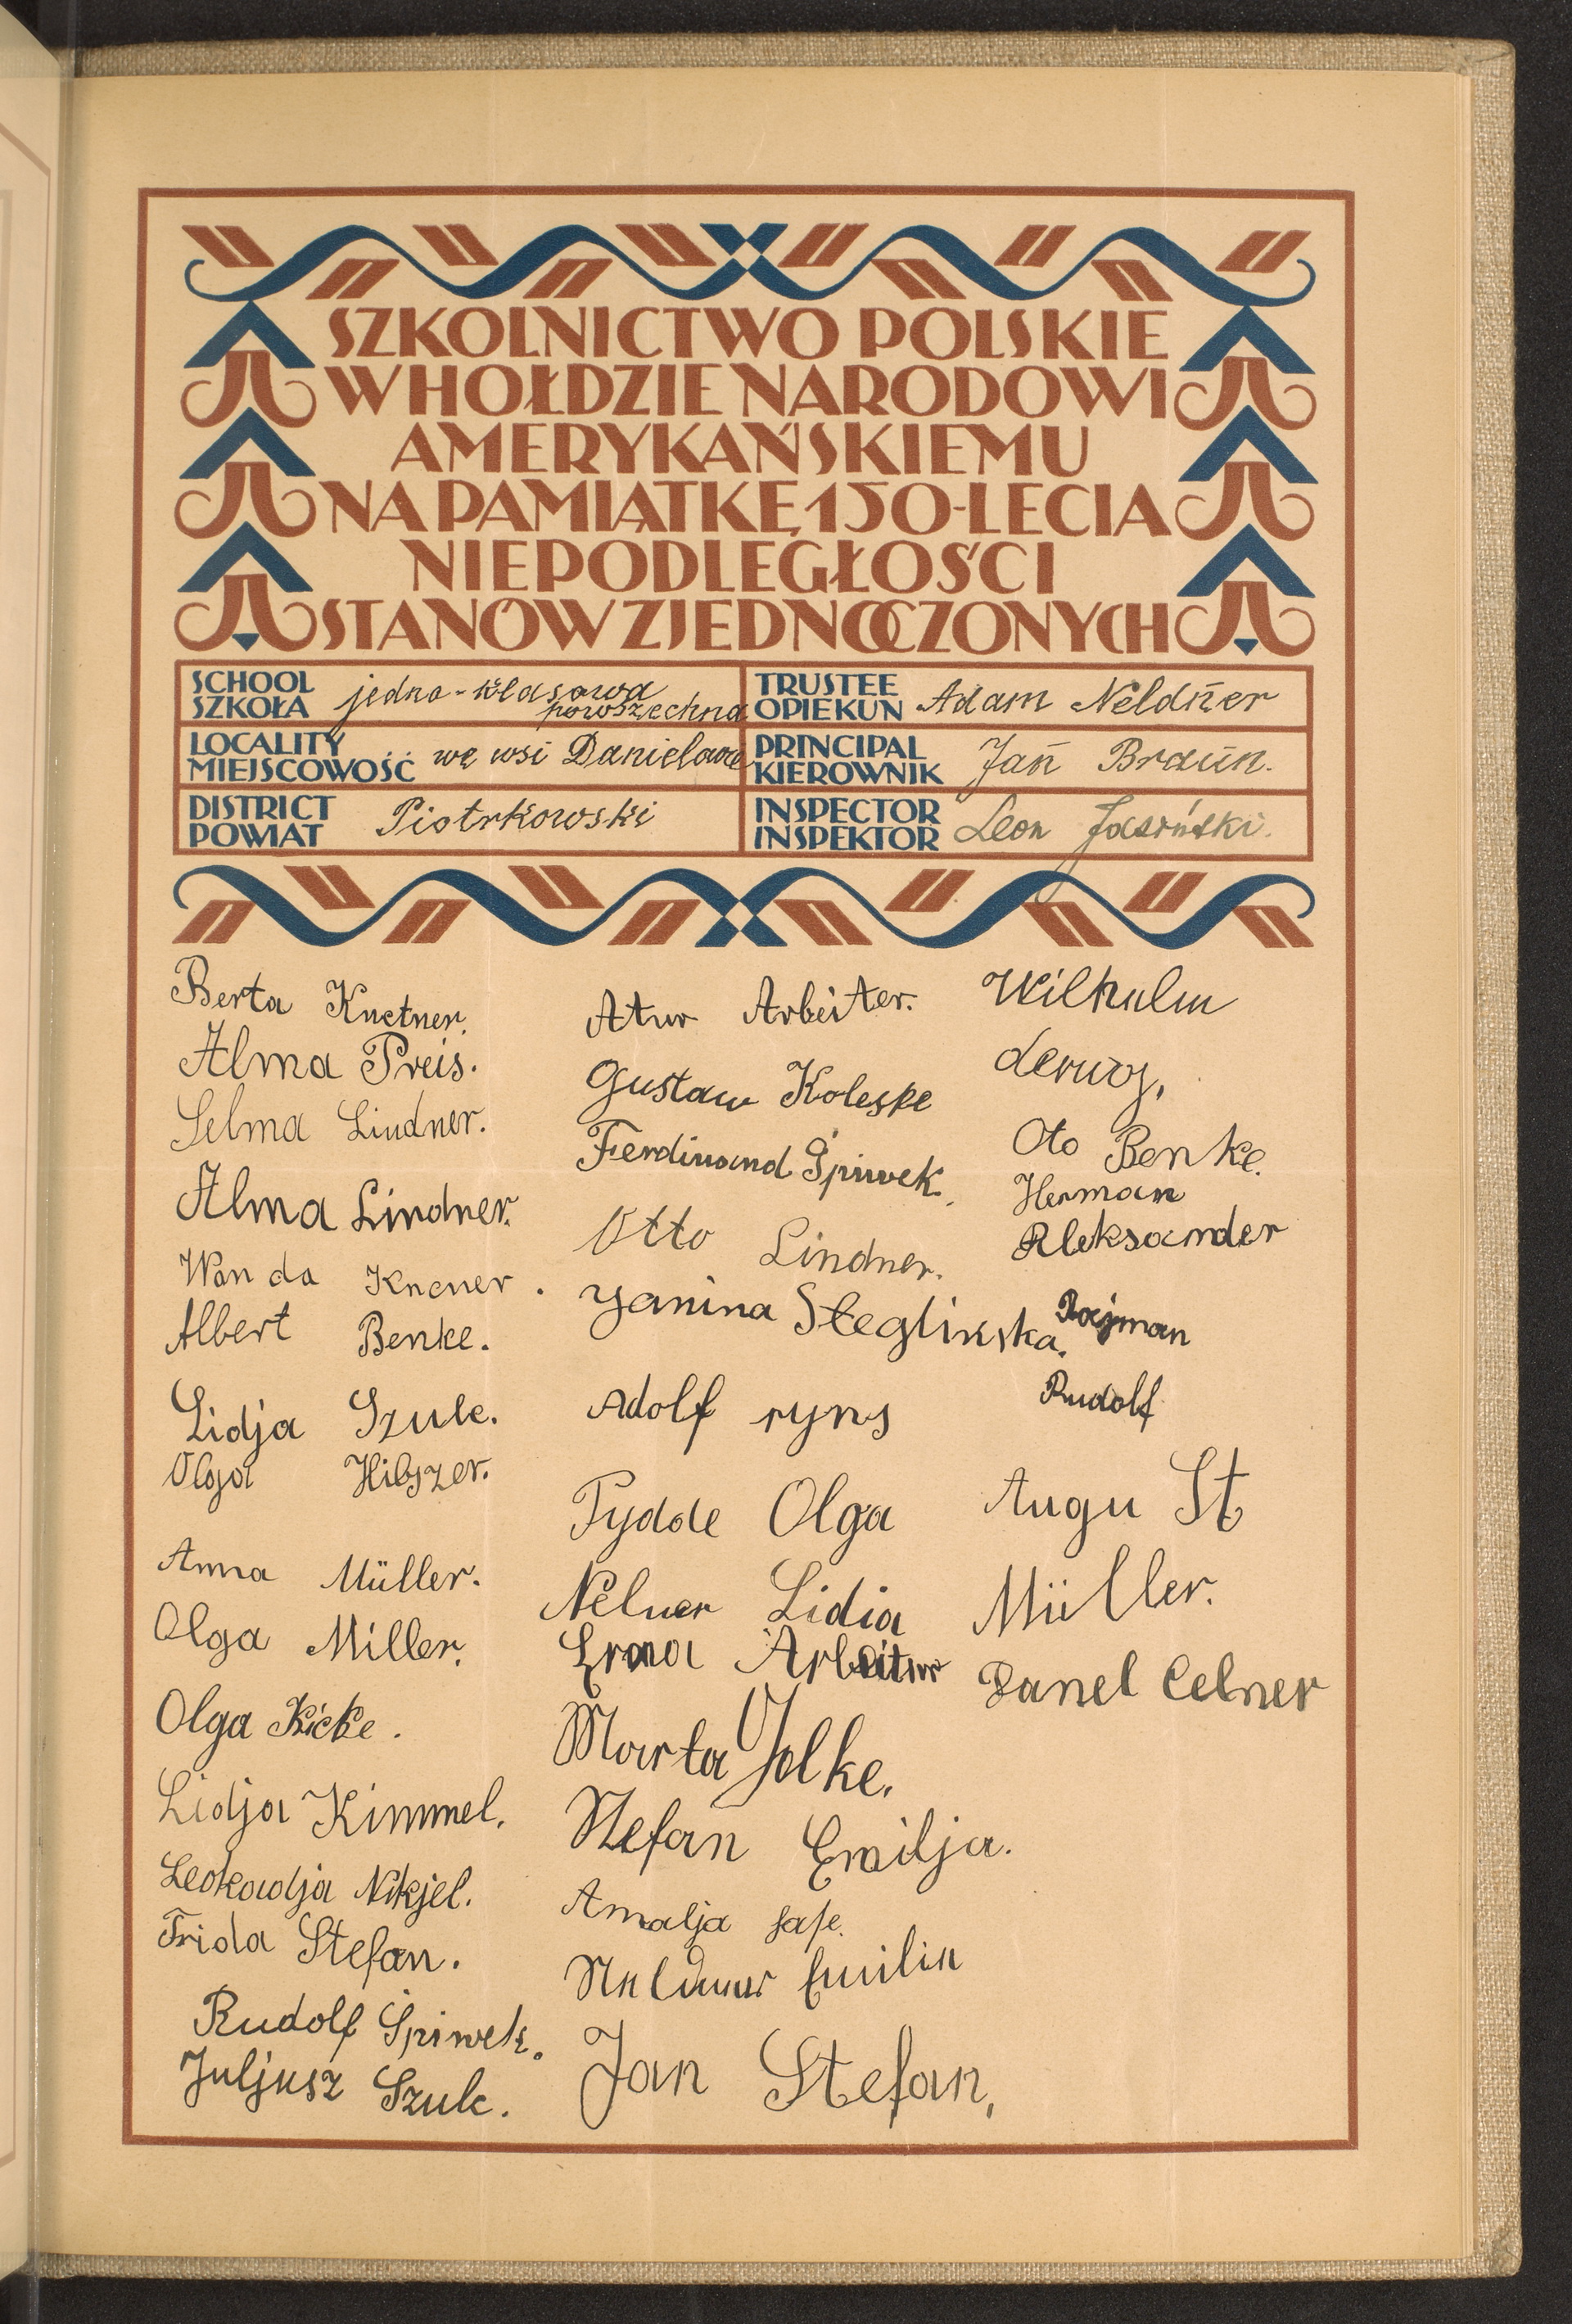 SZKOLNICTWO POLSKIE
W HOŁDZIE NARODOWI
AMERYKAŃSKIEMU
NA PAMIĄTKĘ 150-LECIA
NIEPODLEGŁOŚCI
STANÓW ZJEDNOCZONYCH
SCHOOL
SZKOŁA
jedno-klasowa
powszechna
TRUSTEE
OPIEKUN
Adam Neldner
LOCALITY
MIEJSCOWOŚĆ
we wsi Danielowe
PRINCIPAL
KIEROWNIK
Jan Braun.
DISTRICT
POWIAT
Piotrkowski
INSPECTOR
INSPEKTOR
Leon Jasiński.
Berta Knetner.
Alma Preis.
Selma Lindner.
Alma Lindner.
Wanda Knener.
Albert Benke.
Lidja Szulc.
Olga Hibszer.
Anna Müller.
Olga Miller.
Olga Kicke.
Lidja Kimmel.
Leokadja Nikjel.
Frida Stefan.
Rudolf Śpiwek.
Juljusz Szulc.
Atur Arbeiter.
Gustaw Koleske
Ferdinand Śpiwek.
Otto Lindner.
Yanina Steglinska.
Adolf ryns
Tydde Olga
Nelner Lidia
Erna Arbeiter
Marta Jolke.
Stefan Emilja.
Amalja
Emilia
Jan Stefan,
Wilhelm
Oto Benke.
Herman
Aleksander
Rajman
Rudolf
Augu St
Müller.
Danel Celner